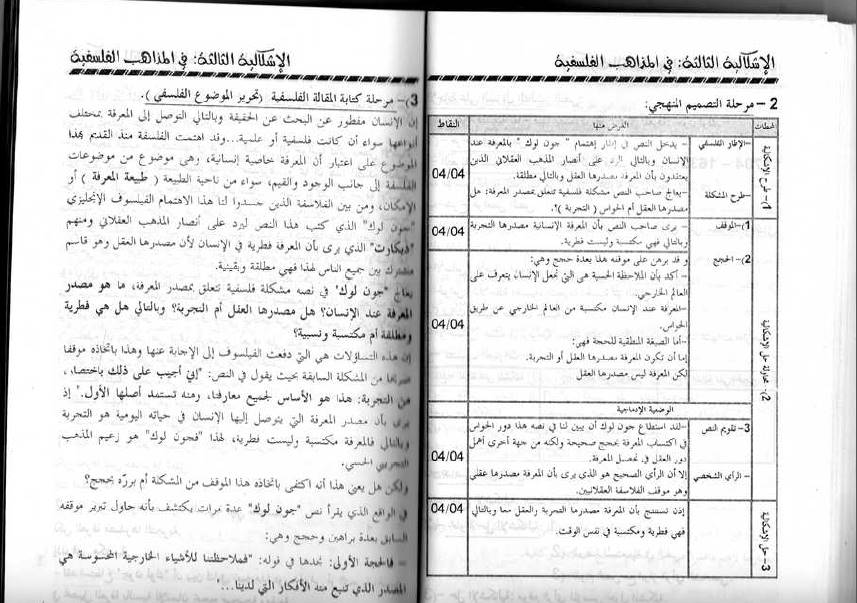 الإشكالية الثالثة: في المذاهب الفلسفية
2 – مرحلة التصميم المنهجي:
المحطات
الغرض منها
النقاط
1)- طرح الإشكالية
–الإطار الفلسفي
– يدخل النص في إطار إهتمام "جون لوك" بالمعرفة عند
الإنسان وبالتالي الرد على أنصار المذهب العقلاني الذين
يعتقدون بأن المعرفة مصدرها العقل وبالتالي مطلقة.
– طرح المشكلة
–يعالج صاحب النص مشكلة فلسفية تتعلق بمصدر المعرفة: هل
مصدرها العقل أم الحواس (التجربة)؟.
04/04
2)- محاولة حل الإشكالية
1)–الموقف
– يرى صاحب النص بأن المعرفة الإنسانية مصدرها التجربة
وبالتالي فهي مكتسبة وليست فطرية.
04/04
2)– الحجج
و قد برهن على موقفه هذا بعدة حجج وهي:
– أكد بأن الملاحظة الحسية هي التي تجعل الإنسان يتعرف على
العالم الخارجي.
–المعرفة عند الإنسان مكتسبة من العالم الخارجي عن طريق
الحواس.
–أما الصيغة المنطقية للحجة فهي:
إما أن تكون المعرفة مصدرها العقل أو التجربة.
لكن المعرفة ليس مصدرها العقل
04/04
الوضعية الإدماجية
3– تقويم النص
–لقد استطاع جون لوك أن يبين لنا في نصه هذا دور الحواس
في اكتساب المعرفة بحجج صحيحة ولكنه من جهة أخرى أهمل
دور العقل في تحصيل المعرفة.
– الرأي الشخصي
إلا أن الرأي الصحيح هو الذي يرى بأن المعرفة مصدرها عقلي
وهو موقف الفلاسفة العقلانيين.
04/04
3 – حل الإشكالية
إذن نستنتج بأن المعرفة مصدرها التجربة والعقل معا وبالتالي
فهي فطرية ومكتسبة في نفس الوقت.
04/04
الإشكالية الثالثة: في المذاهب الفلسفية
3)– مرحلة كتابة المقالة الفلسفية (تحرير الموضوع الفلسفي).
إن الإنسان مفطور عن البحث عن الحقيقة وبالتالي التوصل إلى المعرفة بمختلف
أنواعها سواء أن كانت فلسفية أو علمية...وقد اهتمت الفلسفة منذ القديم بهذا
الموضوع على اعتبار أن المعرفة خاصية إنسانية، وهي موضوع من موضوعات
الفلسفة إلى جانب الوجود والقيم، سواء من ناحية الطبيعة (طبيعة المعرفة) أو
الإمكان، ومن بين الفلاسفة الذين جسدوا لنا هذا الاهتمام الفيلسوف الإنجليزي
"جون لوك" الذي كتب هذا النص ليرد على أنصار المذهب العقلاني ومنهم
"ديكارت" الذي يرى بأن المعرفة فطرية في الإنسان لأن مصدرها العقل وهو قاسم
مشترك بين جميع الناس لهذا فهي مطلقة ويقينية.
يعالج "جون لوك" في نصه مشكلة فلسفية تتعلق بمصدر المعرفة، ما هو مصدر
المعرفة عند الإنسان؟ هل مصدرها العقل أم التجربة؟ وبالتالي هل هي فطرية
ومطلقة أم مكتسبة ونسبية؟
إن هذه التساؤلات هي التي دفعت الفيلسوف إلى الإجابة عنها وهذا باتخاذه موقفا
صريحا من المشكلة السابقة بحيث يقول في النص: "إني أجيب على ذلك باختصار،
من التجربة: هذا هو الأساس لجميع معارفنا، ومنه تستمد أصلها الأول." إذ
يرى بأن مصدر المعرفة التي يتوصل إليها الإنسان في حياته اليومية هو التجربة
وبالتالي فالمعرفة مكتسبة وليست فطرية، لهذا "فجون لوك" هو زعيم المذهب
التجريبي الحسي.
ولكن هل يعني هذا أنه اكتفى باتخاذه هذا الموقف من المشكلة أم برره بحجج؟
في الواقع الذي يقرأ نص "جون لوك" عدة مرات يكتشف بأنه حاول تبرير موقفه
السابق بعدة براهين وحجج وهي:
– فالحجة الأولى: نجدها في قوله: "فملاحظتنا للأشياء الخارجية المحسوسة هي
المصدر الذي تنبع منه الأفكار التي لدينا..."